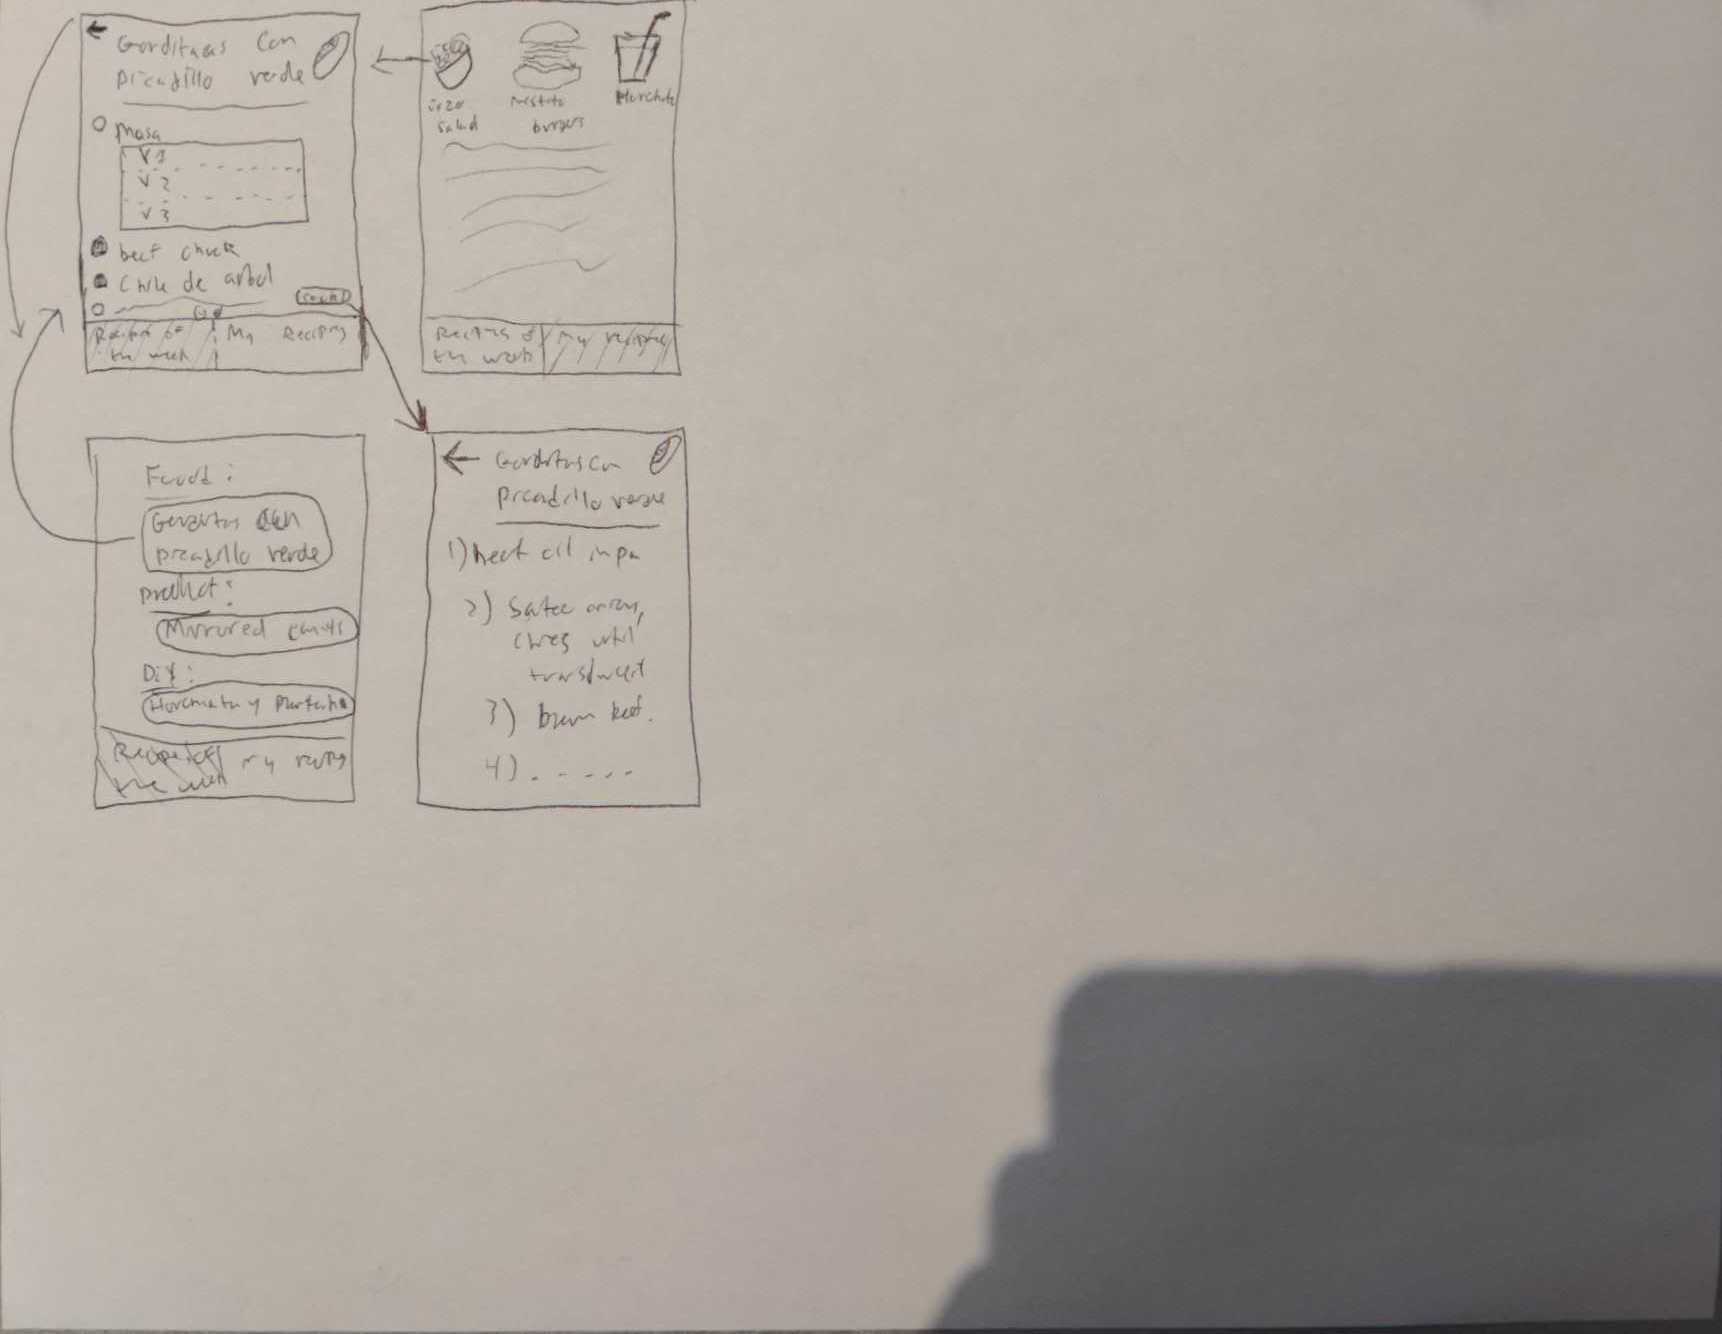 Gorditas con
picadillo verde
Masa
V1
V2
V3
beef chuck
Chile de arbol
Recipes of
the week
My Recipes
orzo
salad
burgers
Horchata
Recipes of
the week
my recipes
Food:
Gorditas con
picadillo verde
product:
Mirrored
DiY:
Horchata y
Recipes of
the week
my
Gorditas con
picadillo verde
1) heat oil in pa
2) Satee onion,
until
translucent
3) brown beef.
4) . - - - -